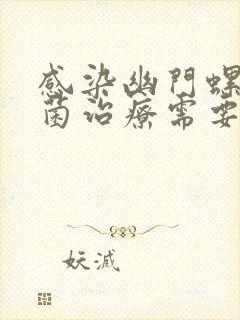 感染幽門螺
菌治療需要
妖滅